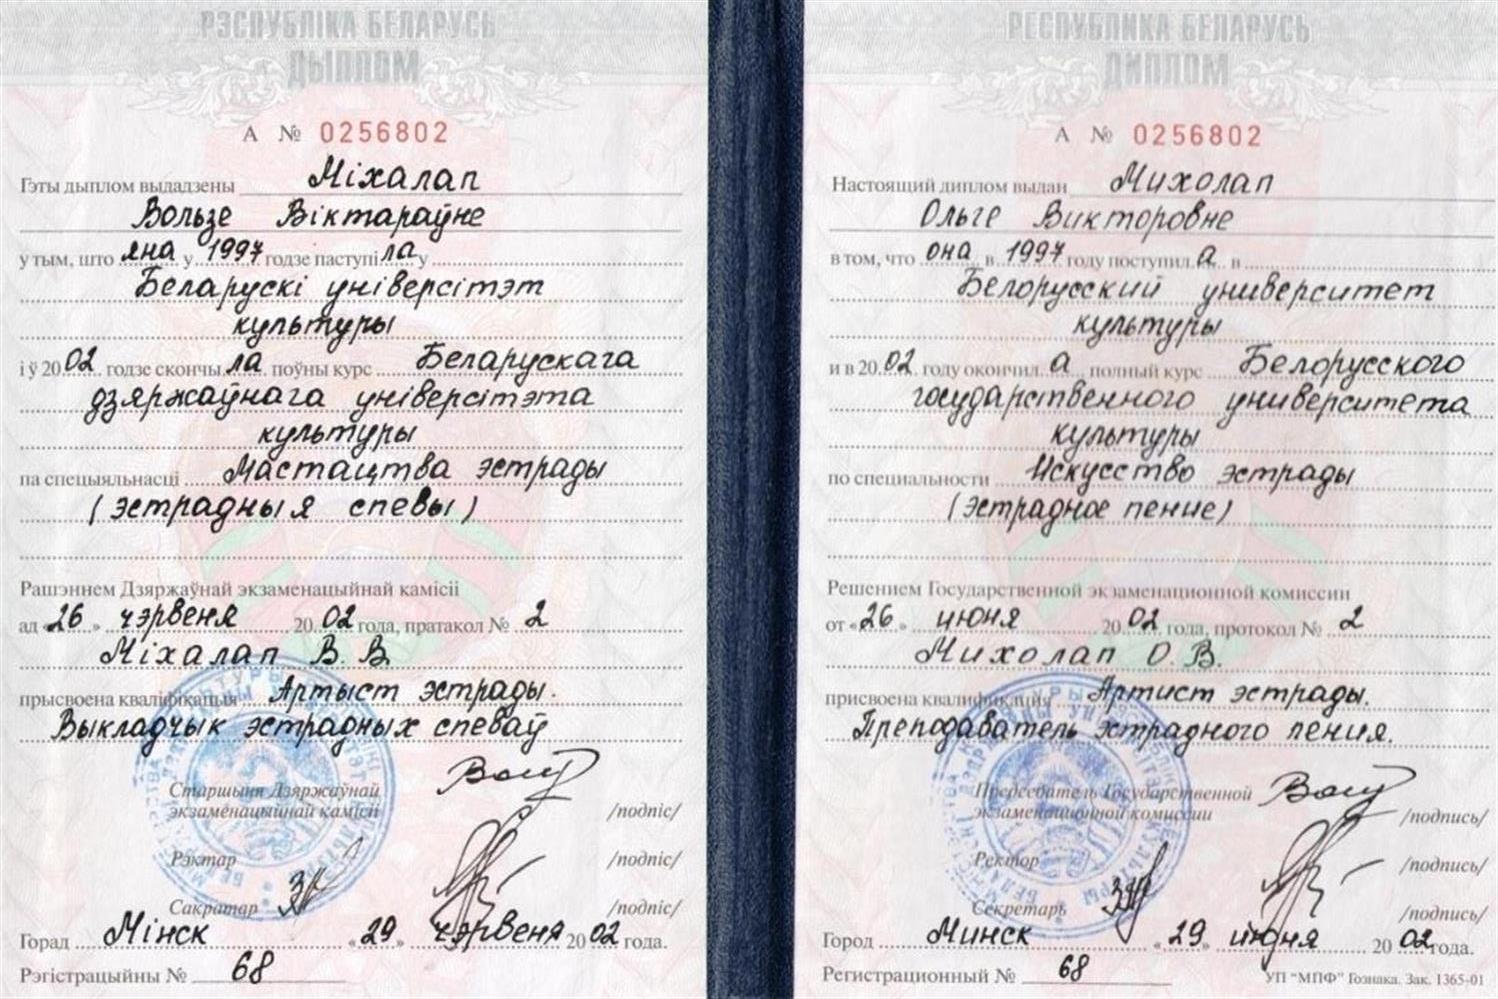 РЭСПУБЛІКА БЕЛАРУСЬ
ДЫПЛОМ
А № 0256802
Гэты дыплом выдадзены Міхалап
Вользе Віктараўне
у тым, што яна у 1997 годзе паступіла у
Беларускі універсітэт
культуры
і ў 2002 годзе скончыла поўны курс Беларускага
дзяржаўнага універсітэта
культуры
па спецыяльнасці Мастацтва эстрады
(эстрадныя спевы)
Рашэннем Дзяржаўнай экзаменацыйнай камісіі
ад «26» чэрвеня 2002 года, пратакол № 2
Міхалап В. В.
прысвоена кваліфікацыя Артыст эстрады.
Выкладчык эстрадных спеваў
Старшыня Дзяржаўнай
экзаменацыйнай камісіі /подпіс/
Рэктар /подпіс/
Сакратар /подпіс/
Горад Мінск «29» чэрвеня 2002 года.
Рэгістрацыйны № 68
РЕСПУБЛИКА БЕЛАРУСЬ
ДИПЛОМ
А № 0256802
Настоящий диплом выдан Михолап
Ольге Викторовне
в том, что она в 1997 году поступила в
Белорусский университет
культуры
и в 2002 году окончила полный курс Белорусского
государственного университета
культуры
по специальности Искусство эстрады
(эстрадное пение)
Решением Государственной экзаменационной комиссии
от «26» июня 2002 года, протокол № 2
Михолап О. В.
присвоена квалификация Артист эстрады.
Преподаватель эстрадного пения.
Председатель Государственной
экзаменационной комиссии /подпись/
Ректор /подпись/
Секретарь /подпись/
Город Минск «29» июня 2002 года.
Регистрационный № 68
УП "МПФ" Гознака. Зак. 1365-01